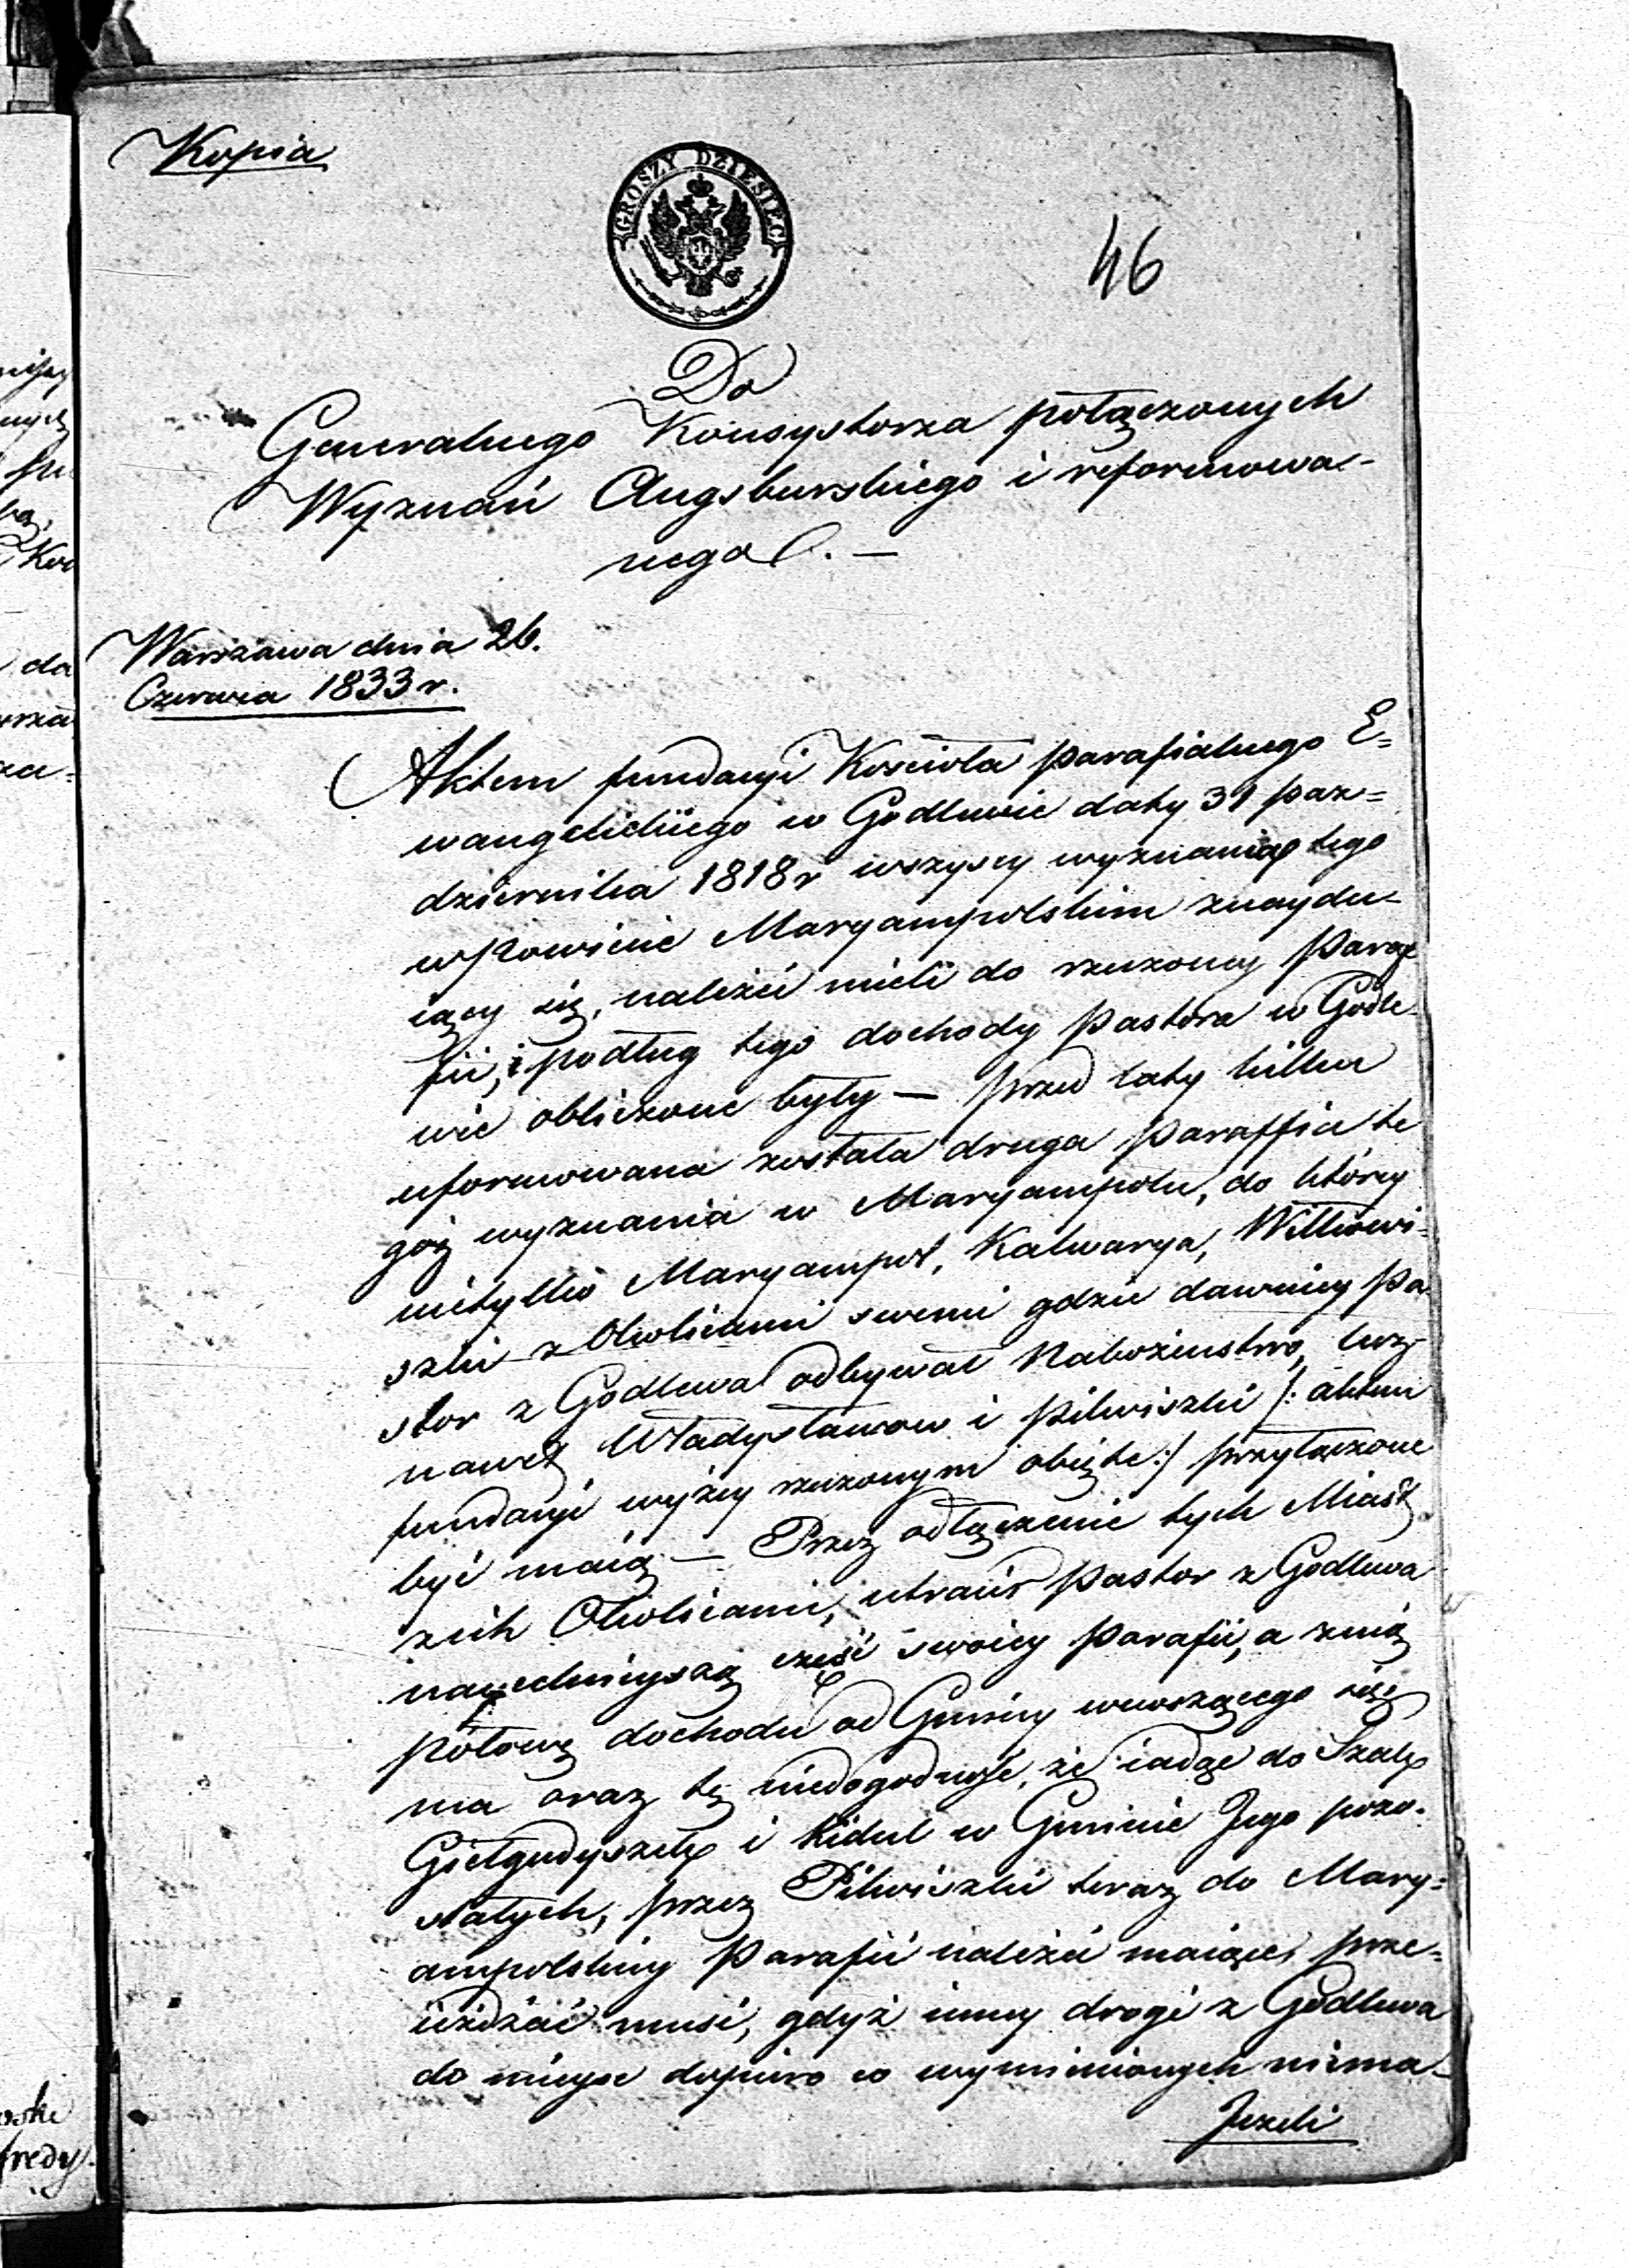 Kopia
GROSZY DZIESIEC
46
Do
Generalnego Konsystorza połączonych
Wyznań Augsburskiego i reformowa-
nego. —
Warszawa dnia 26.
Czerwca 1833 r.
Aktem fundacyi Kościoła parafialnego E=
wangelickiego w Godlewie daty 31 paz=
dziernika 1818 r wszyscy wyznania tego
w Powiecie Maryampolskim znaydu-
iący się, należeć mieli do rzeczoney Para
fii, i podług tego dochody Pastora w Godle-
wie obliczone były — przed laty kilku
uformowana została druga Paraffia te
goż wyznania w Maryampolu, do którey
nietylko Maryampol, Kalwarya, Wiłkowi-
szki z Okolicami swemi gdzie dawniey Pa
stor z Godlewa odbywał Nabożeństwo, lecz
nawet Władysławow i Pilwiszki /: aktem
fundacyi wyżey rzeczonym obięte :/ przyłączone
być maią — Przez odłączenie tych Miast
z ich Okolicami, utraci Pastor z Godlewa
naycelnieyszą część swoiey Parafii, a z nią
połowę dochodu od Gminy wnoszącego się
ma oraz tę niedogodność, że iadąc do Szak
Giełgudyszek i Kidul w Gminie Jego pozo-
stałych, przez Pilwiszki teraz do Mary=
ampolskiey Parafii należeć maiące, prze=
ieżdżać musi, gdyż inney drogi z Godlewa
do mieysc dopiero co wymienionych niema —
Jeżeli